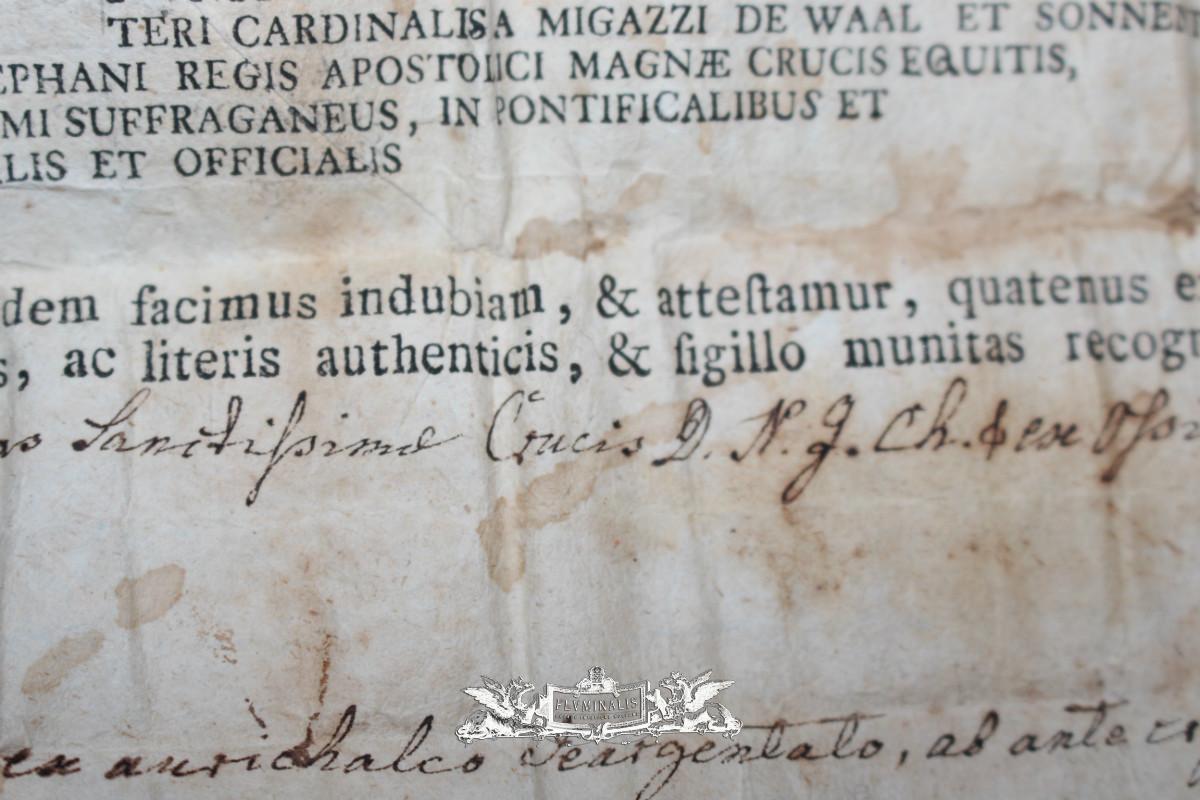 TERI CARDINALIS A MIGAZZI DE WAAL ET SONNENT
EPHANI REGIS APOSTOLICI MAGNÆ CRUCIS EQUITIS,
MI SUFFRAGANEUS, IN PONTIFICALIBUS ET
ALIS ET OFFICIALIS
dem facimus indubiam, & atteſtamur, quatenus e
s, ac literis authenticis, & ſigillo munitas recog
Sanctiſsimæ Crucis D. N. J. Ch. & ex Oſsi
FLVMINALIS
ex aurichalco deargentato, ab ante cr